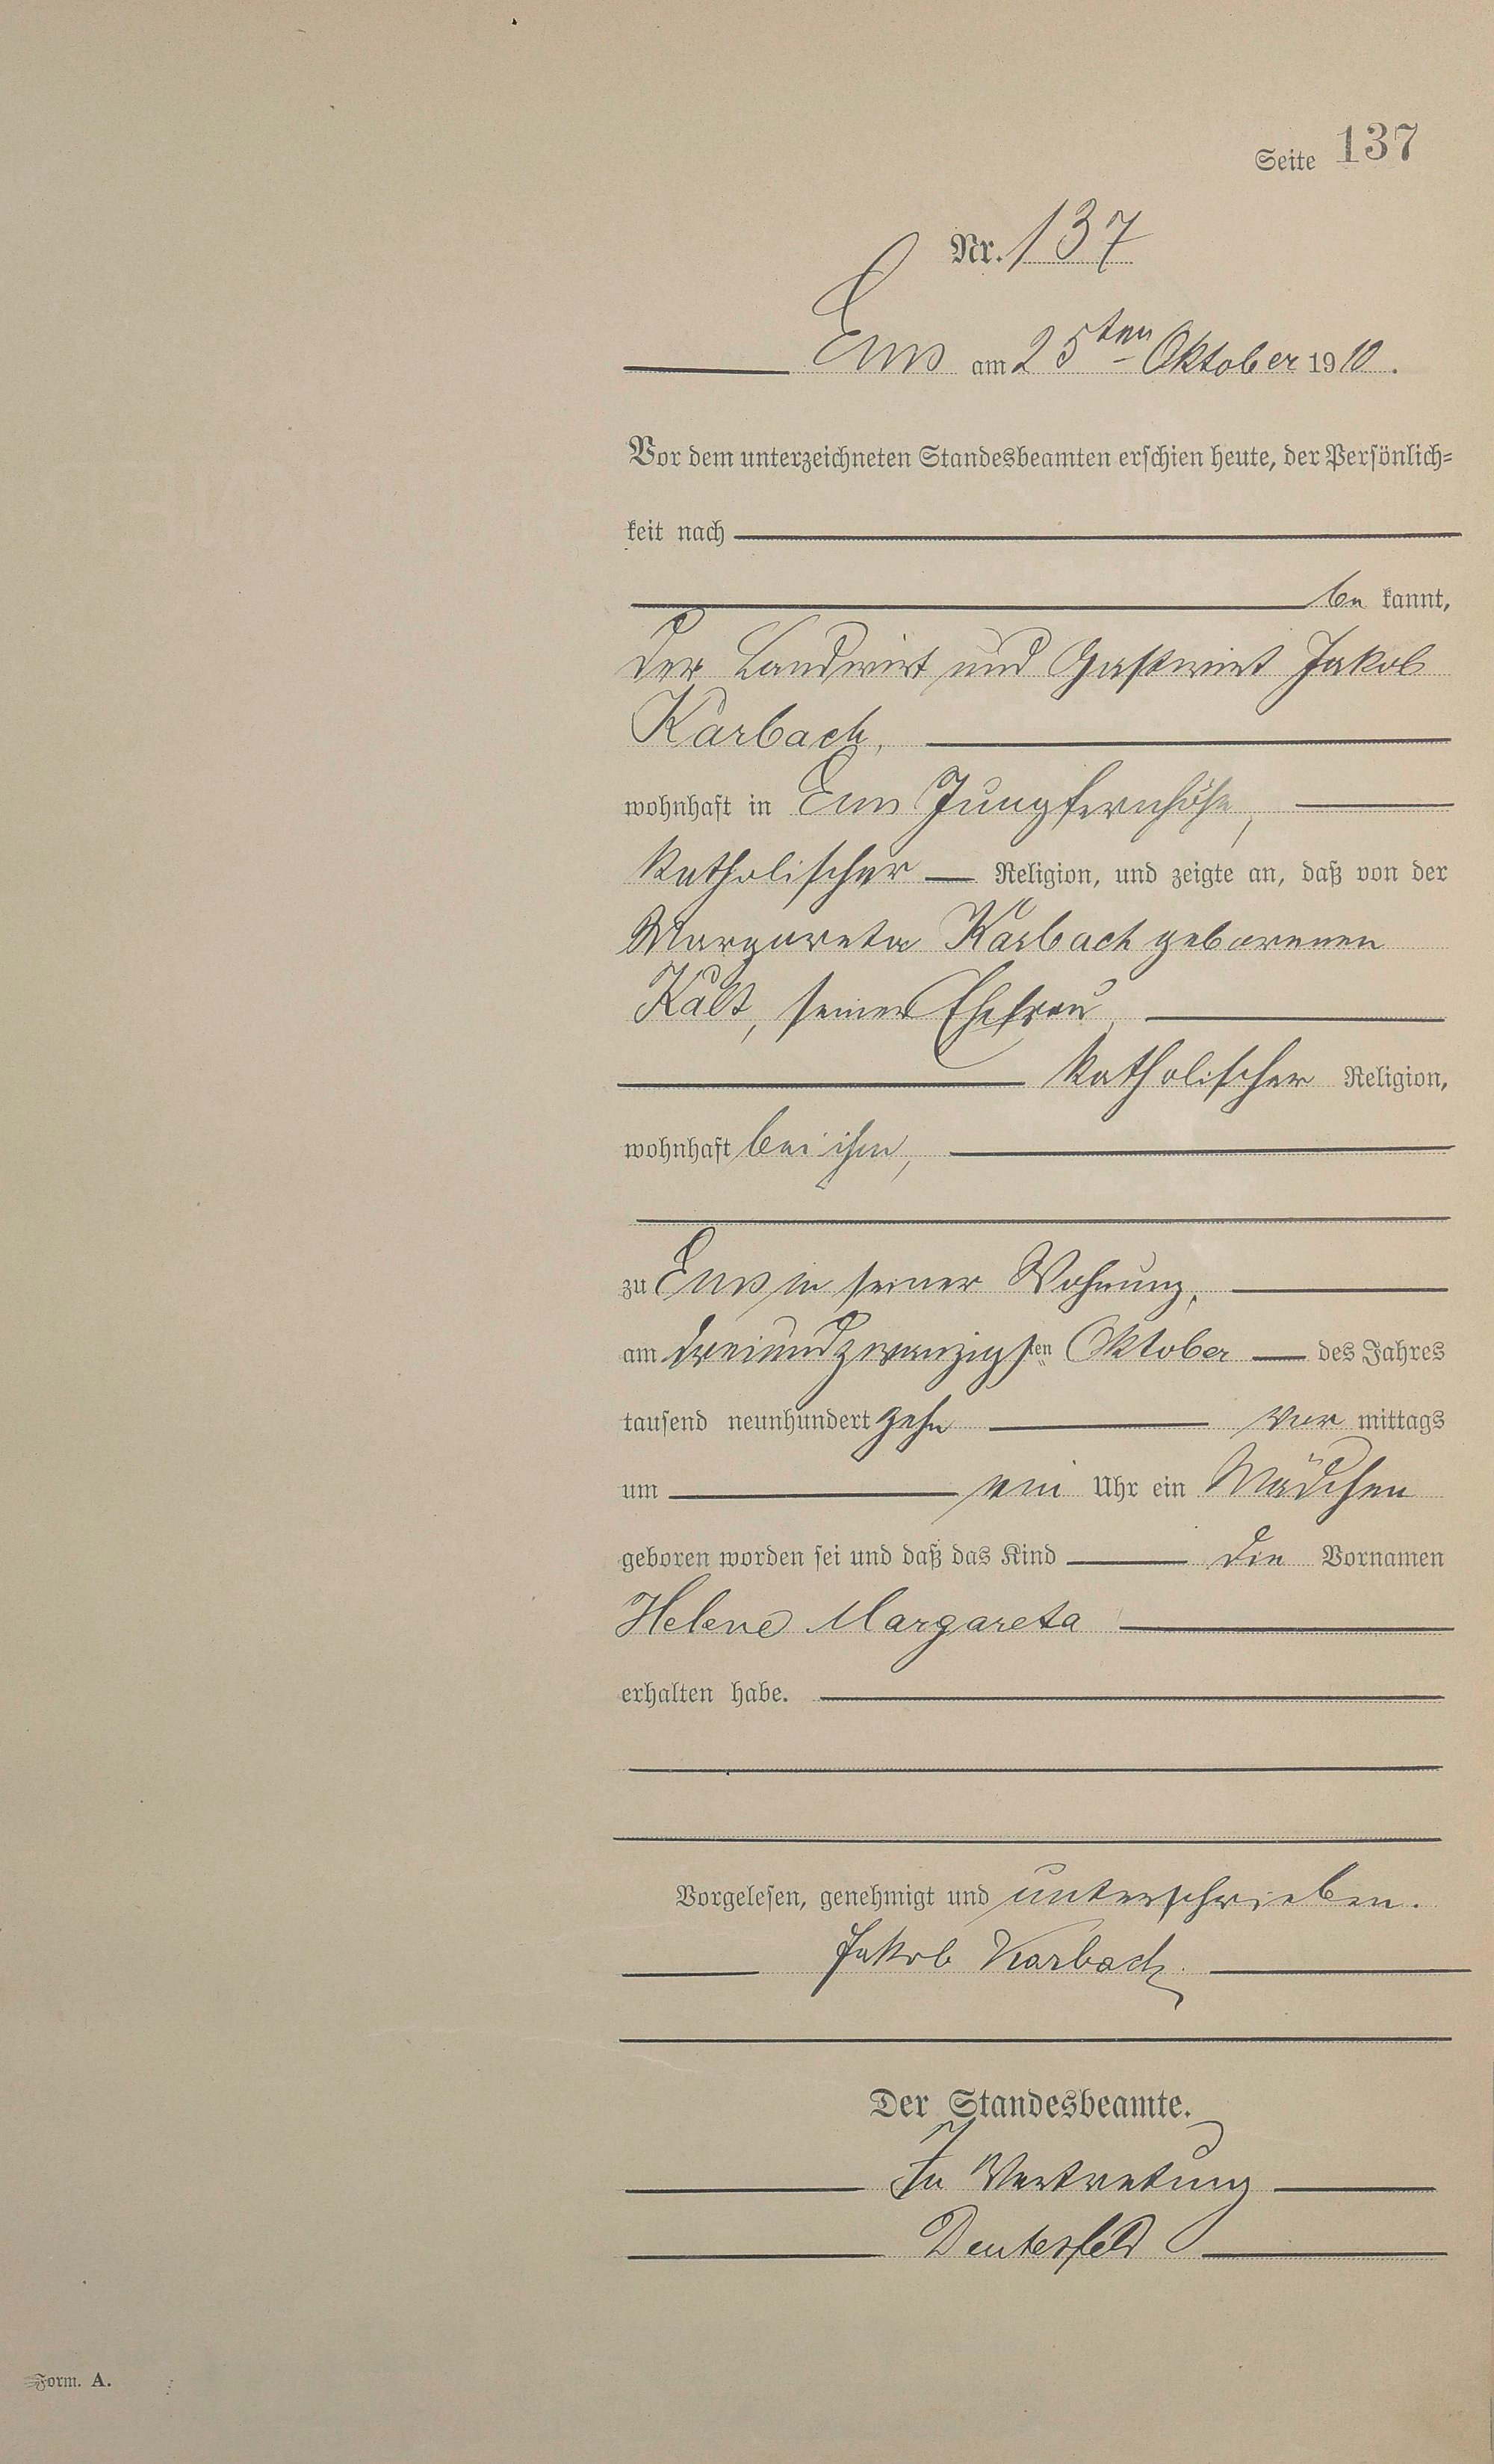 Seite 137
Nr. 137
Ems am 25ten Oktober 1910.
Vor dem unterzeichneten Standesbeamten erschien heute, der Persönlich=
keit nach
be kannt,
der Landwirt und Gastwirt Jakob
Karbach,
wohnhaft in Ems Jungfernhöhe,
katholischer Religion, und zeigte an, daß von der
Margareta Karbach geborenen
Kalt, seiner Ehefrau
katholischer Religion,
wohnhaft bei ihm,
zu Ems in seiner Wohnung,
am dreiundzwanzigsten Oktober des Jahres
tausend neunhundert zehn vor mittags
um ein Uhr ein Mädchen
geboren worden sei und daß das Kind die Vornamen
Helene Margareta
erhalten habe.
Vorgelesen, genehmigt und unterschrieben.
Jakob Karbach.
Der Standesbeamte.
In Vertretung
Deutesfeld
Form. A.